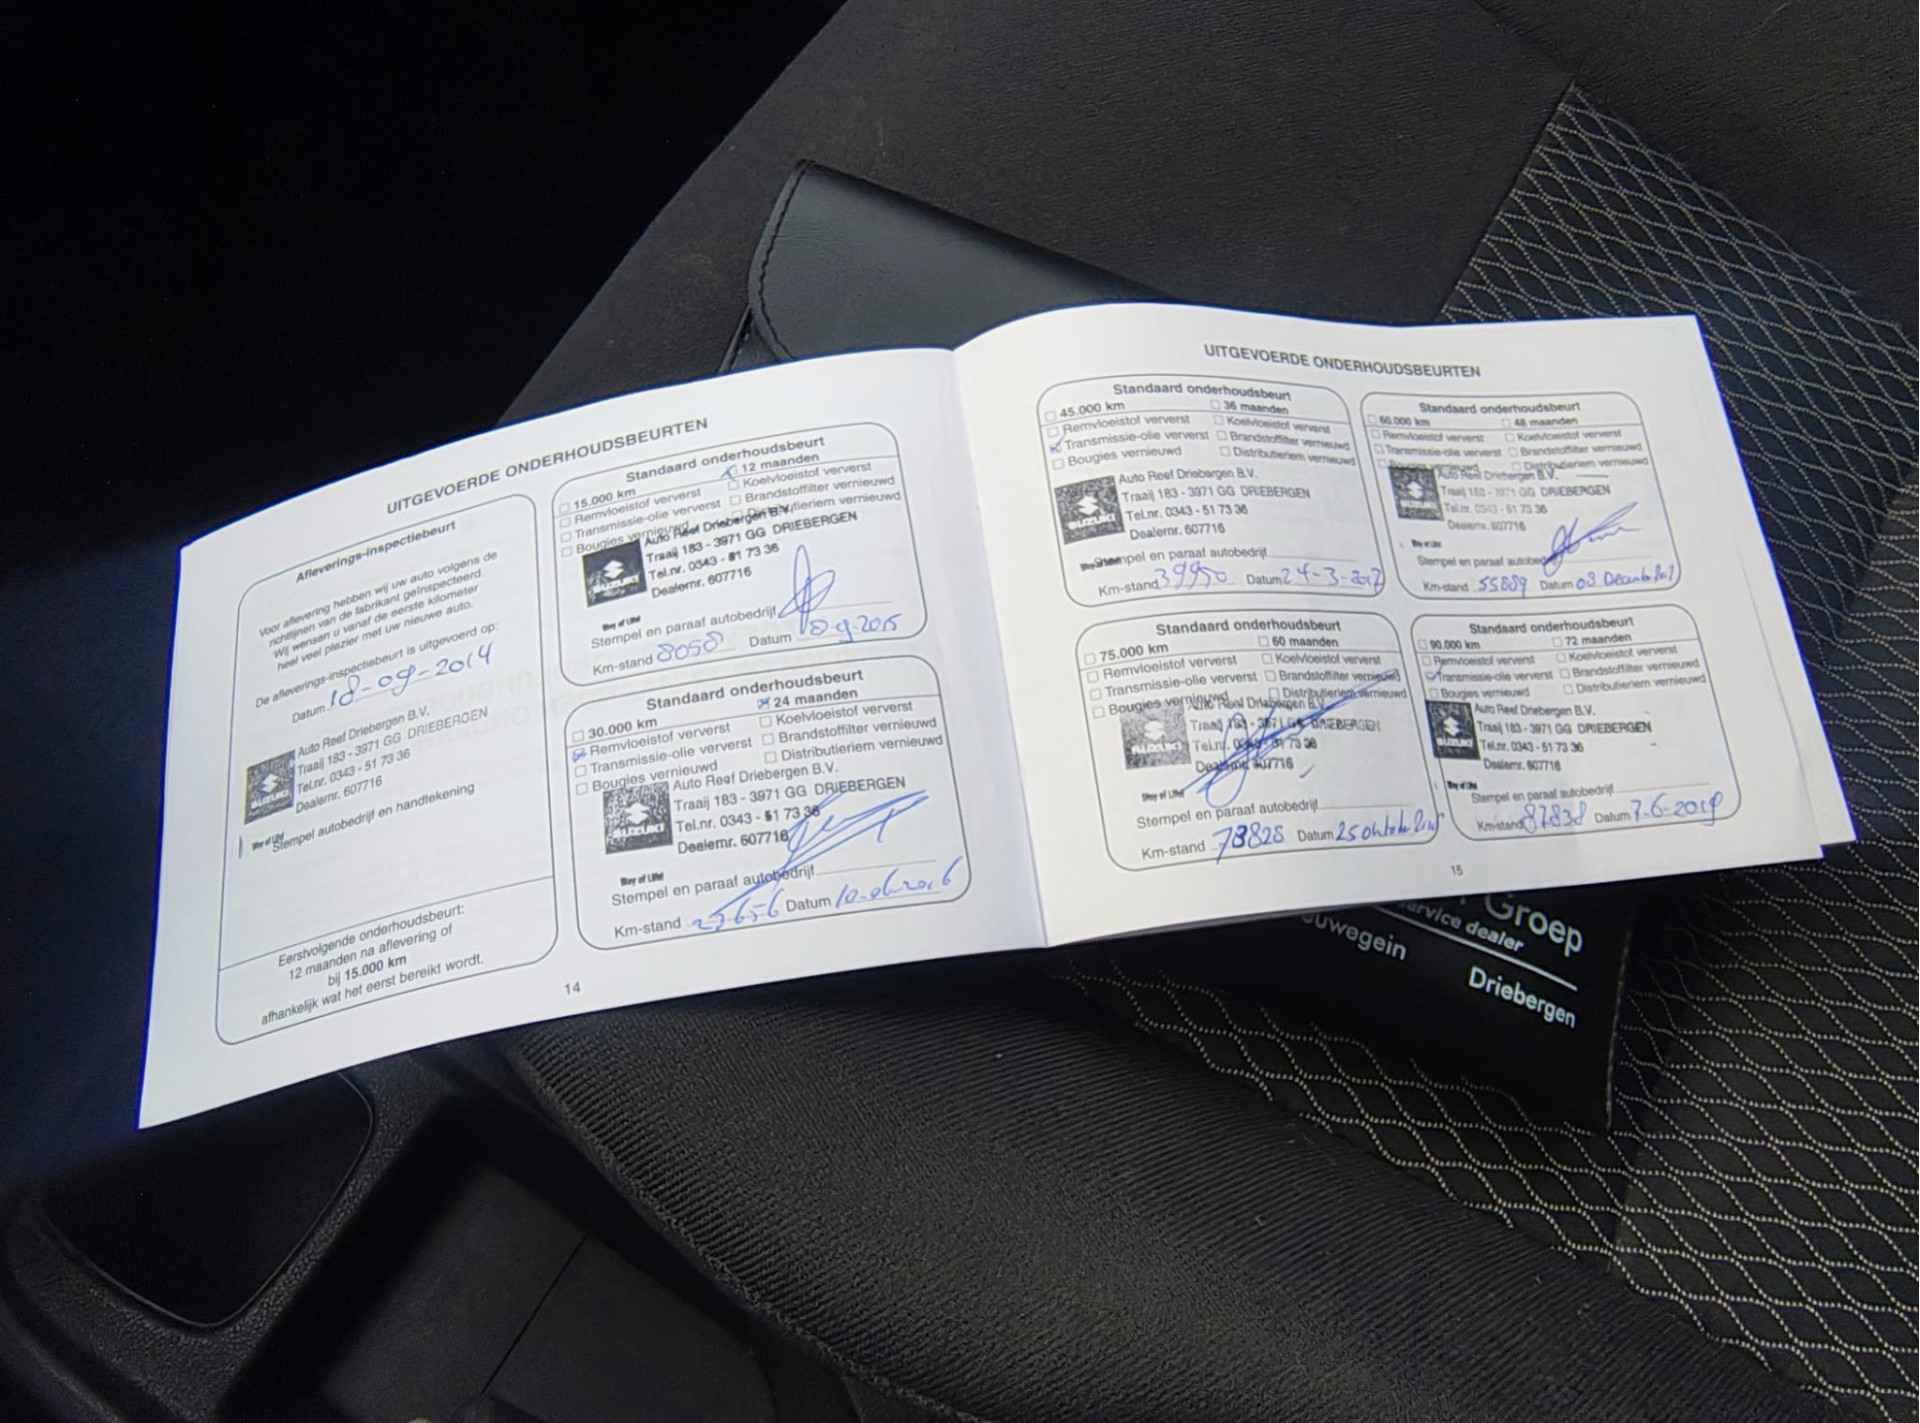 UITGEVOERDE ONDERHOUDSBEURTEN
Afleverings-inspectiebeurt
Voor aflevering hebben wij uw auto volgens de
richtlijnen van de fabrikant geïnspecteerd.
Wij wensen u vanaf de eerste kilometer
heel veel plezier met uw nieuwe auto.
De afleverings-inspectiebeurt is uitgevoerd op:
Datum 18-09-2014
Auto Reef Driebergen B.V.
Traaij 183 - 3971 GG DRIEBERGEN
Tel.nr. 0343 - 51 73 36
Dealernr. 607716
SUZUKI
Way of Life!
Stempel autobedrijf en handtekening
Eerstvolgende onderhoudsbeurt:
12 maanden na aflevering of
bij 15.000 km
afhankelijk wat het eerst bereikt wordt.
Standaard onderhoudsbeurt
15.000 km 12 maanden
Remvloeistof ververst Koelvloeistof ververst
Transmissie-olie ververst Brandstoffilter vernieuwd
Bougies vernieuwd Distributieriem vernieuwd
Auto Reef Driebergen B.V.
Traaij 183 - 3971 GG DRIEBERGEN
Tel.nr. 0343 - 51 73 36
Dealernr. 607716
SUZUKI
Way of Life!
Stempel en paraaf autobedrijf
Km-stand 8050 Datum
Standaard onderhoudsbeurt
30.000 km 24 maanden
Remvloeistof ververst Koelvloeistof ververst
Transmissie-olie ververst Brandstoffilter vernieuwd
Bougies vernieuwd Distributieriem vernieuwd
Auto Reef Driebergen B.V.
Traaij 183 - 3971 GG DRIEBERGEN
Tel.nr. 0343 - 51 73 36
Dealernr. 607716
SUZUKI
Way of Life!
Stempel en paraaf autobedrijf
Km-stand Datum
14
UITGEVOERDE ONDERHOUDSBEURTEN
Standaard onderhoudsbeurt
45.000 km 36 maanden
Remvloeistof ververst Koelvloeistof ververst
Transmissie-olie ververst Brandstoffilter vernieuwd
Bougies vernieuwd Distributieriem vernieuwd
Auto Reef Driebergen B.V.
Traaij 183 - 3971 GG DRIEBERGEN
Tel.nr. 0343 - 51 73 36
Dealernr. 607716
SUZUKI
Stempel en paraaf autobedrijf
Km-stand 39950 Datum 24-3-2017
Standaard onderhoudsbeurt
60.000 km 48 maanden
Remvloeistof ververst Koelvloeistof ververst
Transmissie-olie ververst Brandstoffilter vernieuwd
Distributieriem vernieuwd
Auto Reef Driebergen B.V.
Traaij 183 - 3971 GG DRIEBERGEN
Tel.nr. 0343 - 51 73 36
Dealernr. 607716
SUZUKI
Way of Life!
Stempel en paraaf autobedrijf
Km-stand 55889 Datum 08 December 2017
Standaard onderhoudsbeurt
75.000 km 60 maanden
Remvloeistof ververst Koelvloeistof ververst
Transmissie-olie ververst Brandstoffilter vernieuwd
Bougies vernieuwd Distributieriem vernieuwd
Auto Reef Driebergen B.V.
Traaij 183 - 3971 GG DRIEBERGEN
Tel.nr. 0343 - 51 73 36
Dealernr. 607716
SUZUKI
Way of Life!
Stempel en paraaf autobedrijf
Km-stand 73828 Datum 25 oktober
Standaard onderhoudsbeurt
90.000 km 72 maanden
Remvloeistof ververst Koelvloeistof ververst
Transmissie-olie ververst Brandstoffilter vernieuwd
Bougies vernieuwd Distributieriem vernieuwd
Auto Reef Driebergen B.V.
Traaij 183 - 3971 GG DRIEBERGEN
Tel.nr. 0343 - 51 73 36
Dealernr. 607716
SUZUKI
Way of Life!
Stempel en paraaf autobedrijf
Km-stand 87838 Datum 7-6-2019
15
Groep
service dealer
Driebergen